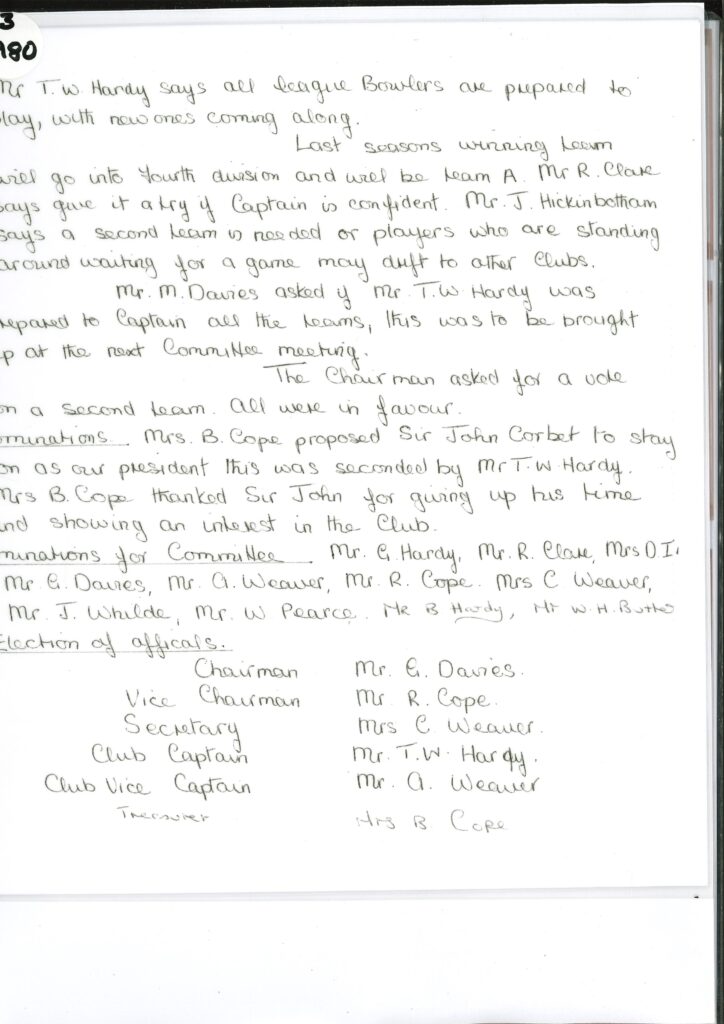 3
980
Mr T.W. Hardy says all league Bowlers are prepared to
lay, with new ones coming along.
Last seasons winning team
will go into fourth division and will be team A. Mr R. Clare
says give it a try if Captain is confident. Mr. J. Hickinbotham
says a second team is needed or players who are standing
around waiting for a game may drift to other Clubs.
Mr. M. Davies asked if Mr. T.W Hardy was
repared to Captain all the teams, this was to be brought
p at the next Committee meeting.
The Chairman asked for a vote
on a second team. All were in favour.
ominations. Mrs. B. Cope proposed Sir John Corbet to stay
on as our president this was seconded by Mr T.W. Hardy.
Mrs B. Cope thanked Sir John for giving up his time
nd showing an interest in the Club.
minations for Committee Mr. G Hardy, Mr. R. Clare, Mrs D I
Mr G. Davies, Mr. A. Weaver, Mr. R. Cope. Mrs C Weaver,
Mr. J. Whilde, Mr. W Pearce. Mr B Hardy, Mr W.H.
Election of officals.
Chairman Mr. G. Davies.
Vice Chairman Mr. R. Cope.
Secretary Mrs C. Weaver.
Club Captain Mr. T.W. Hardy.
Club Vice Captain Mr. A. Weaver
Treasurer Mrs B Cope